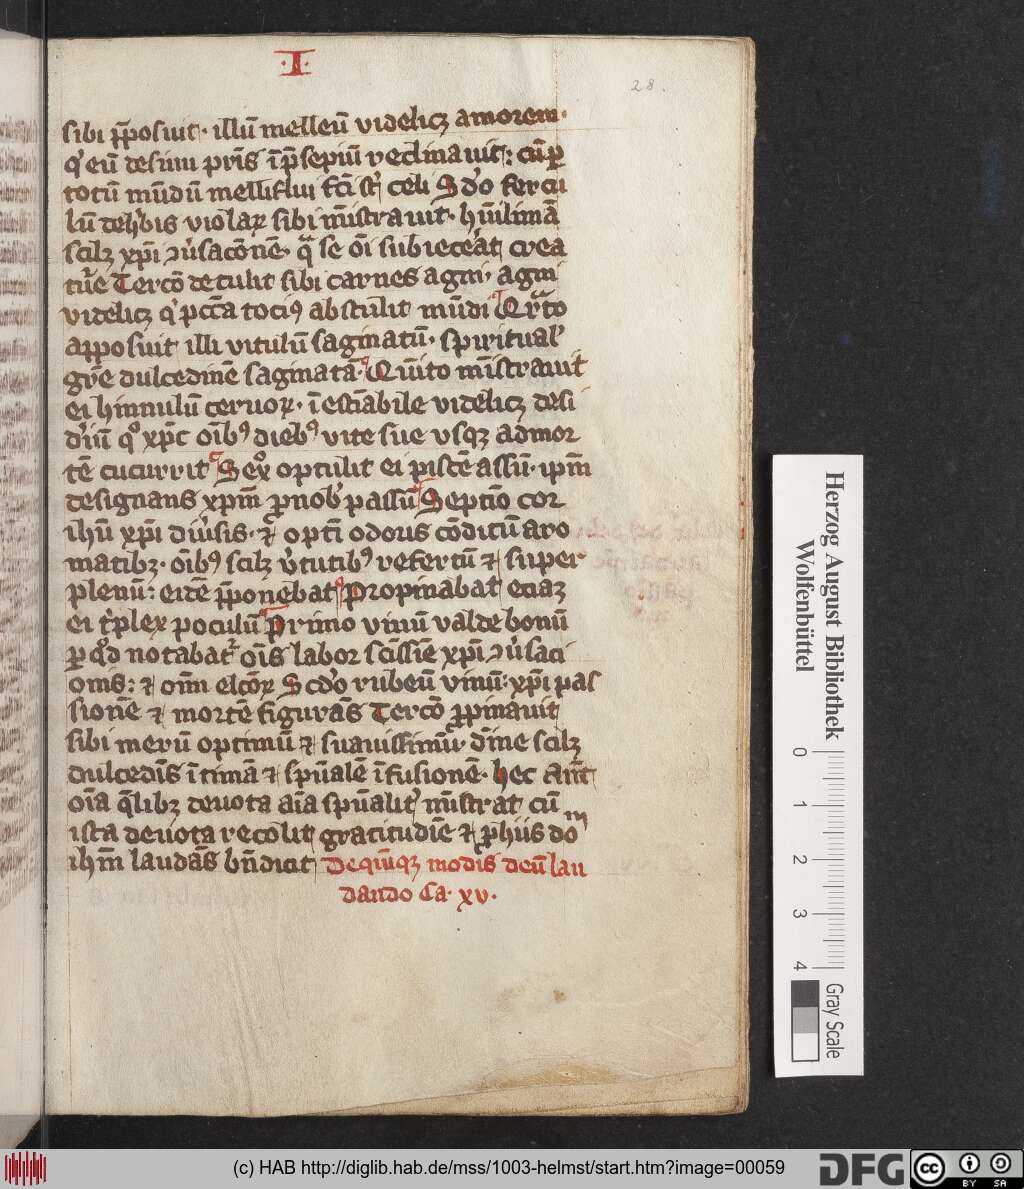 ·I·
28.
sibi p̄posuit· illū melleū videlicꝫ amorem·
q' eū de sinu pr̄is ī p̄sepiū reclinauit: cū ꝑ
totū mūdū melliflui fc̄i st' celi Scd'o fercu
lū de h'bis violaꝝ sibi mīstrauit· hūilimā
scilꝫ xp̄i ꝯu'sacōnē· q̄ se oī subiecerāt crea
tur̄e Tercō detulit sibi carnes agni· agni
videlicꝫ q' pcc̄a toci9 abstulit mūdi Qr̄to
apposuit illi vitulū saginatū· spiritual'
gr̄e dulcedinē saginatā· Quīto mīstrauit
ei hinnulū ceruoꝝ· ī estīabile videlicꝫ desi
d'iū qo xp̄c oīb9 dieb9 vite sue vsqꝫ ad mor
tē cucurrit Sexo optulit ei piscē assū· ipm̄
designans xpm̄ ꝓ nob' passū Septīo cor
ihū xp̄i diu'sis· ⁊ opti odoris cōditū aro
matibꝫ· oīb9 scilꝫ v'tutib9 refertū ⁊ super
plenū: eidē p̄ponebat Propinabat eciaꝫ
ei t'plex poculū Primo vinū valde bonū
ꝑ qȯd notabat' oīs labor scīssīe xp̄i ꝯu'saci
onis: ⁊ om̄ elcōꝝ Scd'o rubeū vinū: xp̄i pas
sionē ⁊ mortē figurās Tercō ꝓpinauit
sibi merū optimū ⁊ suauissimū· dīne scilꝫ
dulcedīs ītimā ⁊ spūalē īfusionē· hec aūt
oīa q̄libꝫ deuota aīa spūalit' mīstrat cū
ista deuota recolit gratitudīe ⁊ ꝓ hiis dom̄
ihm̄ laudās bn̄dicit De quīqꝫ modis deū lau
dando Ca· xv·
Herzog August Bibliothek
Wolfenbüttel
0 1 2 3 4
Gray Scale
(c) HAB http://diglib.hab.de/mss/1003-helmst/start.htm?image=00059
DFG
cc BY SA